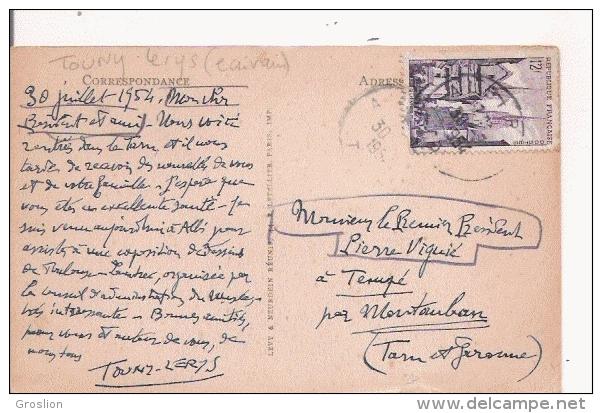 TOUNY Lerys (écrivain)
CORRESPONDANCE
30 juillet 1954. Mon cher
Président et ami. Nous voici
rentrés dans le Tarn et il nous
tarde de recevoir des nouvelles de vous
et de votre famille. J'espère que
vous êtes en excellente santé. Je
suis venu aujourd'hui à Albi pour
assister à une exposition de dessins
de Toulouse-Lautrec, organisée par
le conseil d'administration du Musée
très intéressante. Bonnes amitiés,
pour vous et autour de vous, de
nous tous
TOUNY-LERYS
LEVY & NEURDEIN RÉUNIS, LETELLIER, PARIS. IMP.
ADRES
12F
REPUBLIQUE FRANÇAISE
30
195
Monsieur le Premier Président
Pierre Viguié
à Tempé
par Montauban
(Tarn et Garonne)
delcampe.net
Groslion